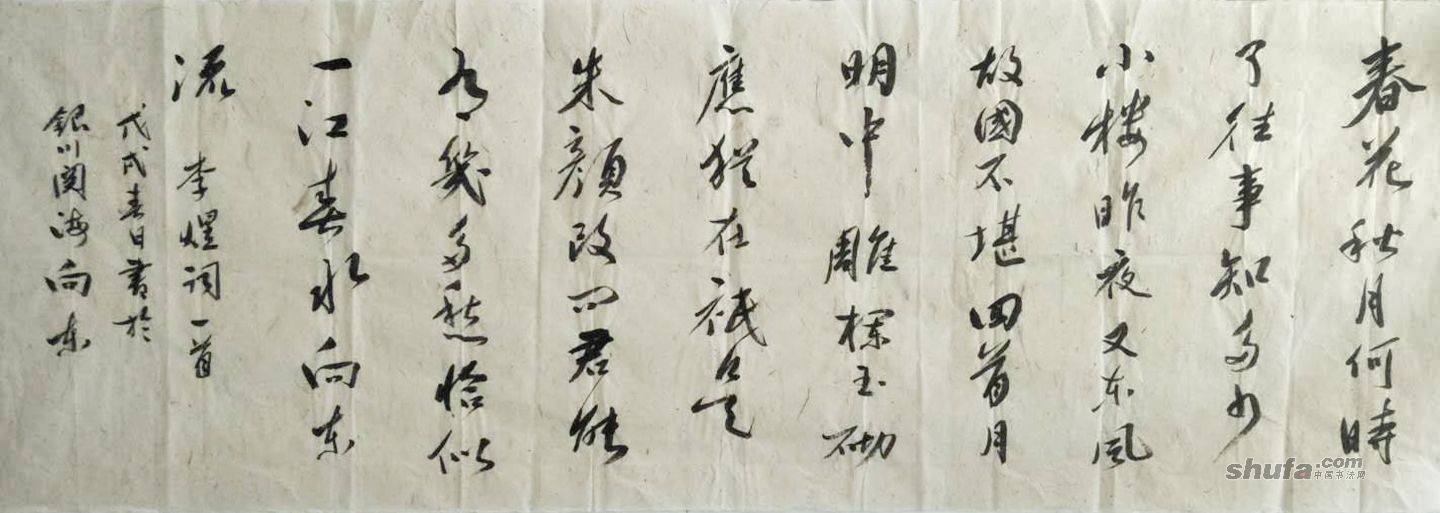 春花秋月何時
了往事知多少
小楼昨夜又东風
故國不堪回首月
明中雕欄玉砌
應猶在祗是
朱顔改问君能
有幾多愁恰似
一江春水向东
流 李煜词一首
戊戌春日書於
銀川閲海向东
shufa.com
中国书法网